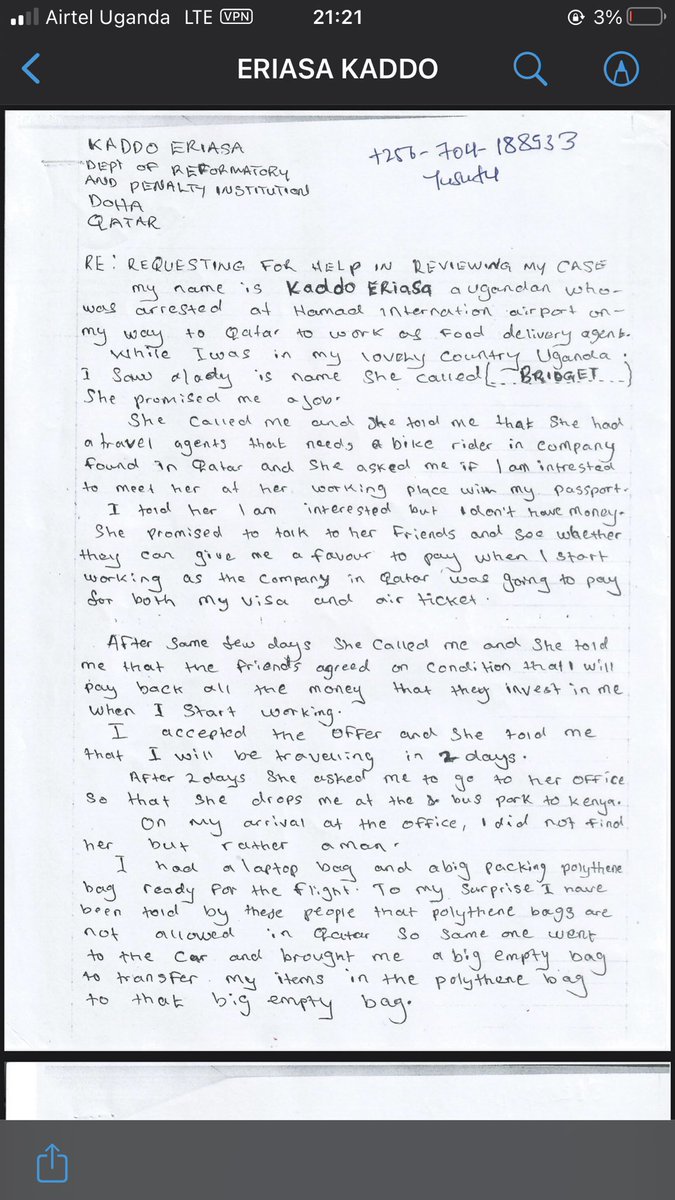 Airtel Uganda LTE VPN 21:21 3%
ERIASA KADDO
KADDO ERIASA
DEPT OF REFORMATORY
AND PENALTY INSTITUTION
DOHA
QATAR
+256-704-188533
RE: REQUESTING FOR HELP IN REVIEWING MY CASE
my name is Kaddo ERiasa a ugandan who-
was arrested at Hamad internation airport on-
my way to Qatar to work as Food delivery agent.
While I was in my lovely country Uganda.
I Saw a lady is name She called (BRIDGET)
She promised me a job.
She called me and she told me that She had
a travel agents that needs a bike rider in company
found in Qatar and She asked me if I am intrested
to meet her at her working place with my passport.
I told her I am interested but I don't have money.
She promised to talk to her Friends and see whether
they can give me a favour to pay when I start
working as the company in Qatar was going to pay
for both my visa and air ticket.
After same few days She called me and She told
me that the friends agreed on condition that I will
pay back all the money that they invest in me
when I start working.
I accepted the offer and She told me
that I will be traveling in 2 days.
After 2 days She asked me to go to her office
so that she drops me at the bus park to Kenya.
On my arrival at the office, I did not find
her but rather a man.
I had a laptop bag and a big packing polythene
bag ready for the flight. To my surprise I have
been told by these people that polythene bags are
not allowed in Qatar So same one went
to the car and brought me a big empty bag
to transfer my items in the polythene bag
to that big empty bag.